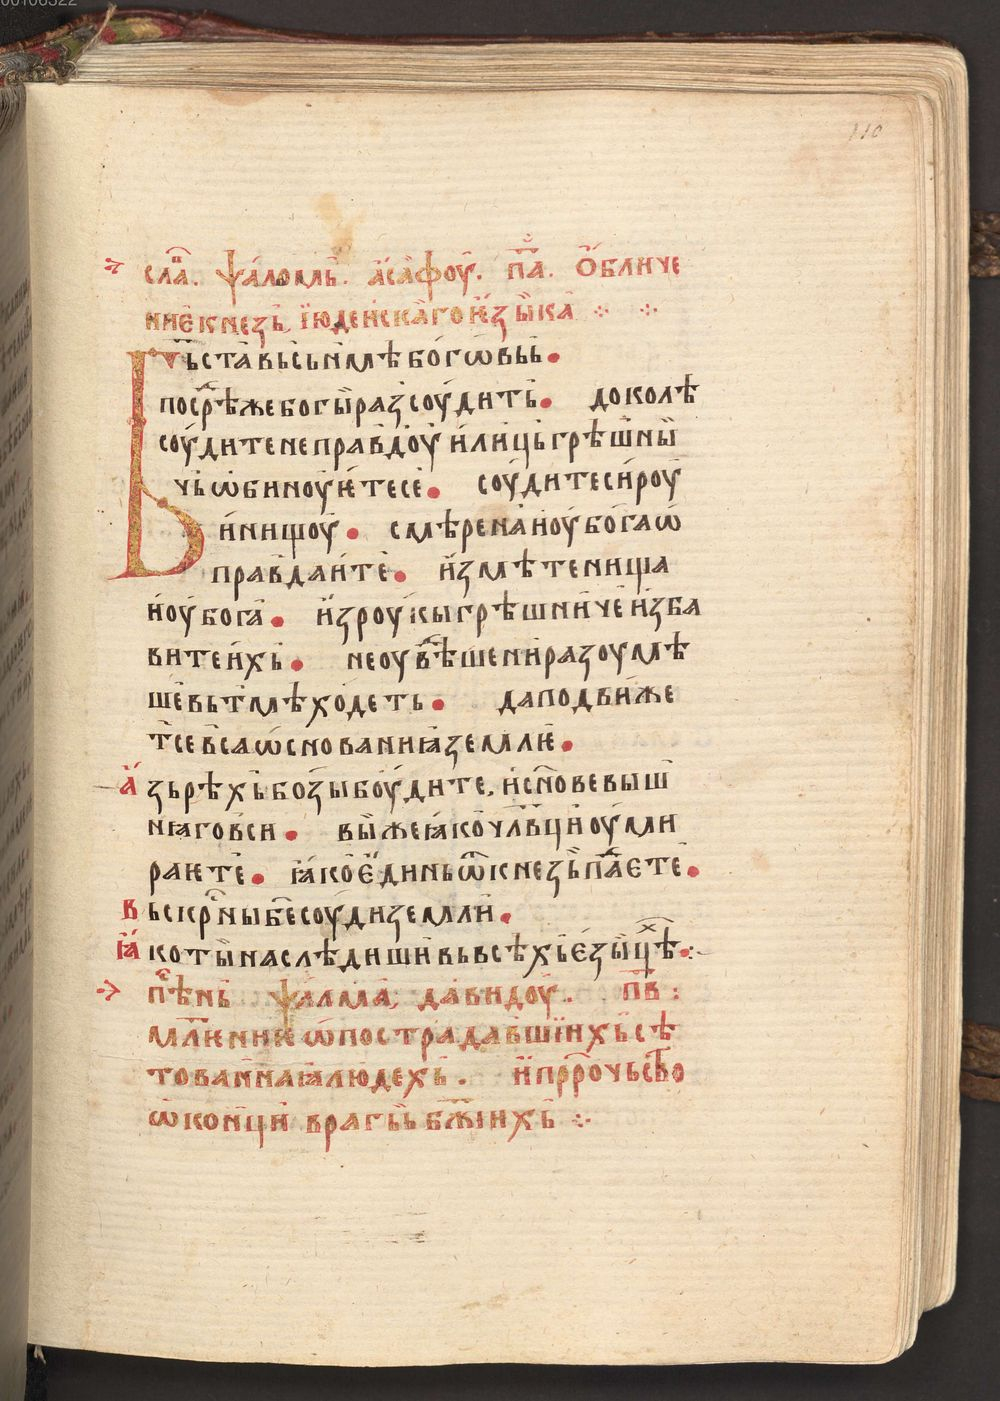 110
сла҃. ѱаломь. асафоу. п҃а. Обличе
ниѥ кнезь їюдеискаго ѥзыка
Бь ста вь сьнмѣ боговь.
посрѣ же богы разсоудить. доколѣ
соудите неправдоу и лица грѣшны
чь ѡбиноуѥте се. соудите сироу
и нищоу. смѣрена и оубога ѡ
правдаите. измѣте нища
и оубога. из роукы грѣшниче изба
вите ихь. не оувѣше ни разоумѣ
ше вь тмѣ ходеть. да подвиже
т се вса ѡснованиꙗ землѥ.
азь рѣхь бозы боудите, и сн҃ове выш
нꙗго вси. вы же ꙗко чл҃вци оуми
раѥте. ꙗко ѥдинь ѿ кнезь падаѥте.
вьскр҃ни б҃е соуди земли.
ꙗко ты наслѣдиши вь всѣхь ѥзыцѣх.
пѣснь ѱалма, давидоу. п҃в:
мл҃ениѥ ѡ пострадавшїихь сѣ
тованнаꙗ людехь. и пррочьство
ѡ конци врагьь бж҃їихь